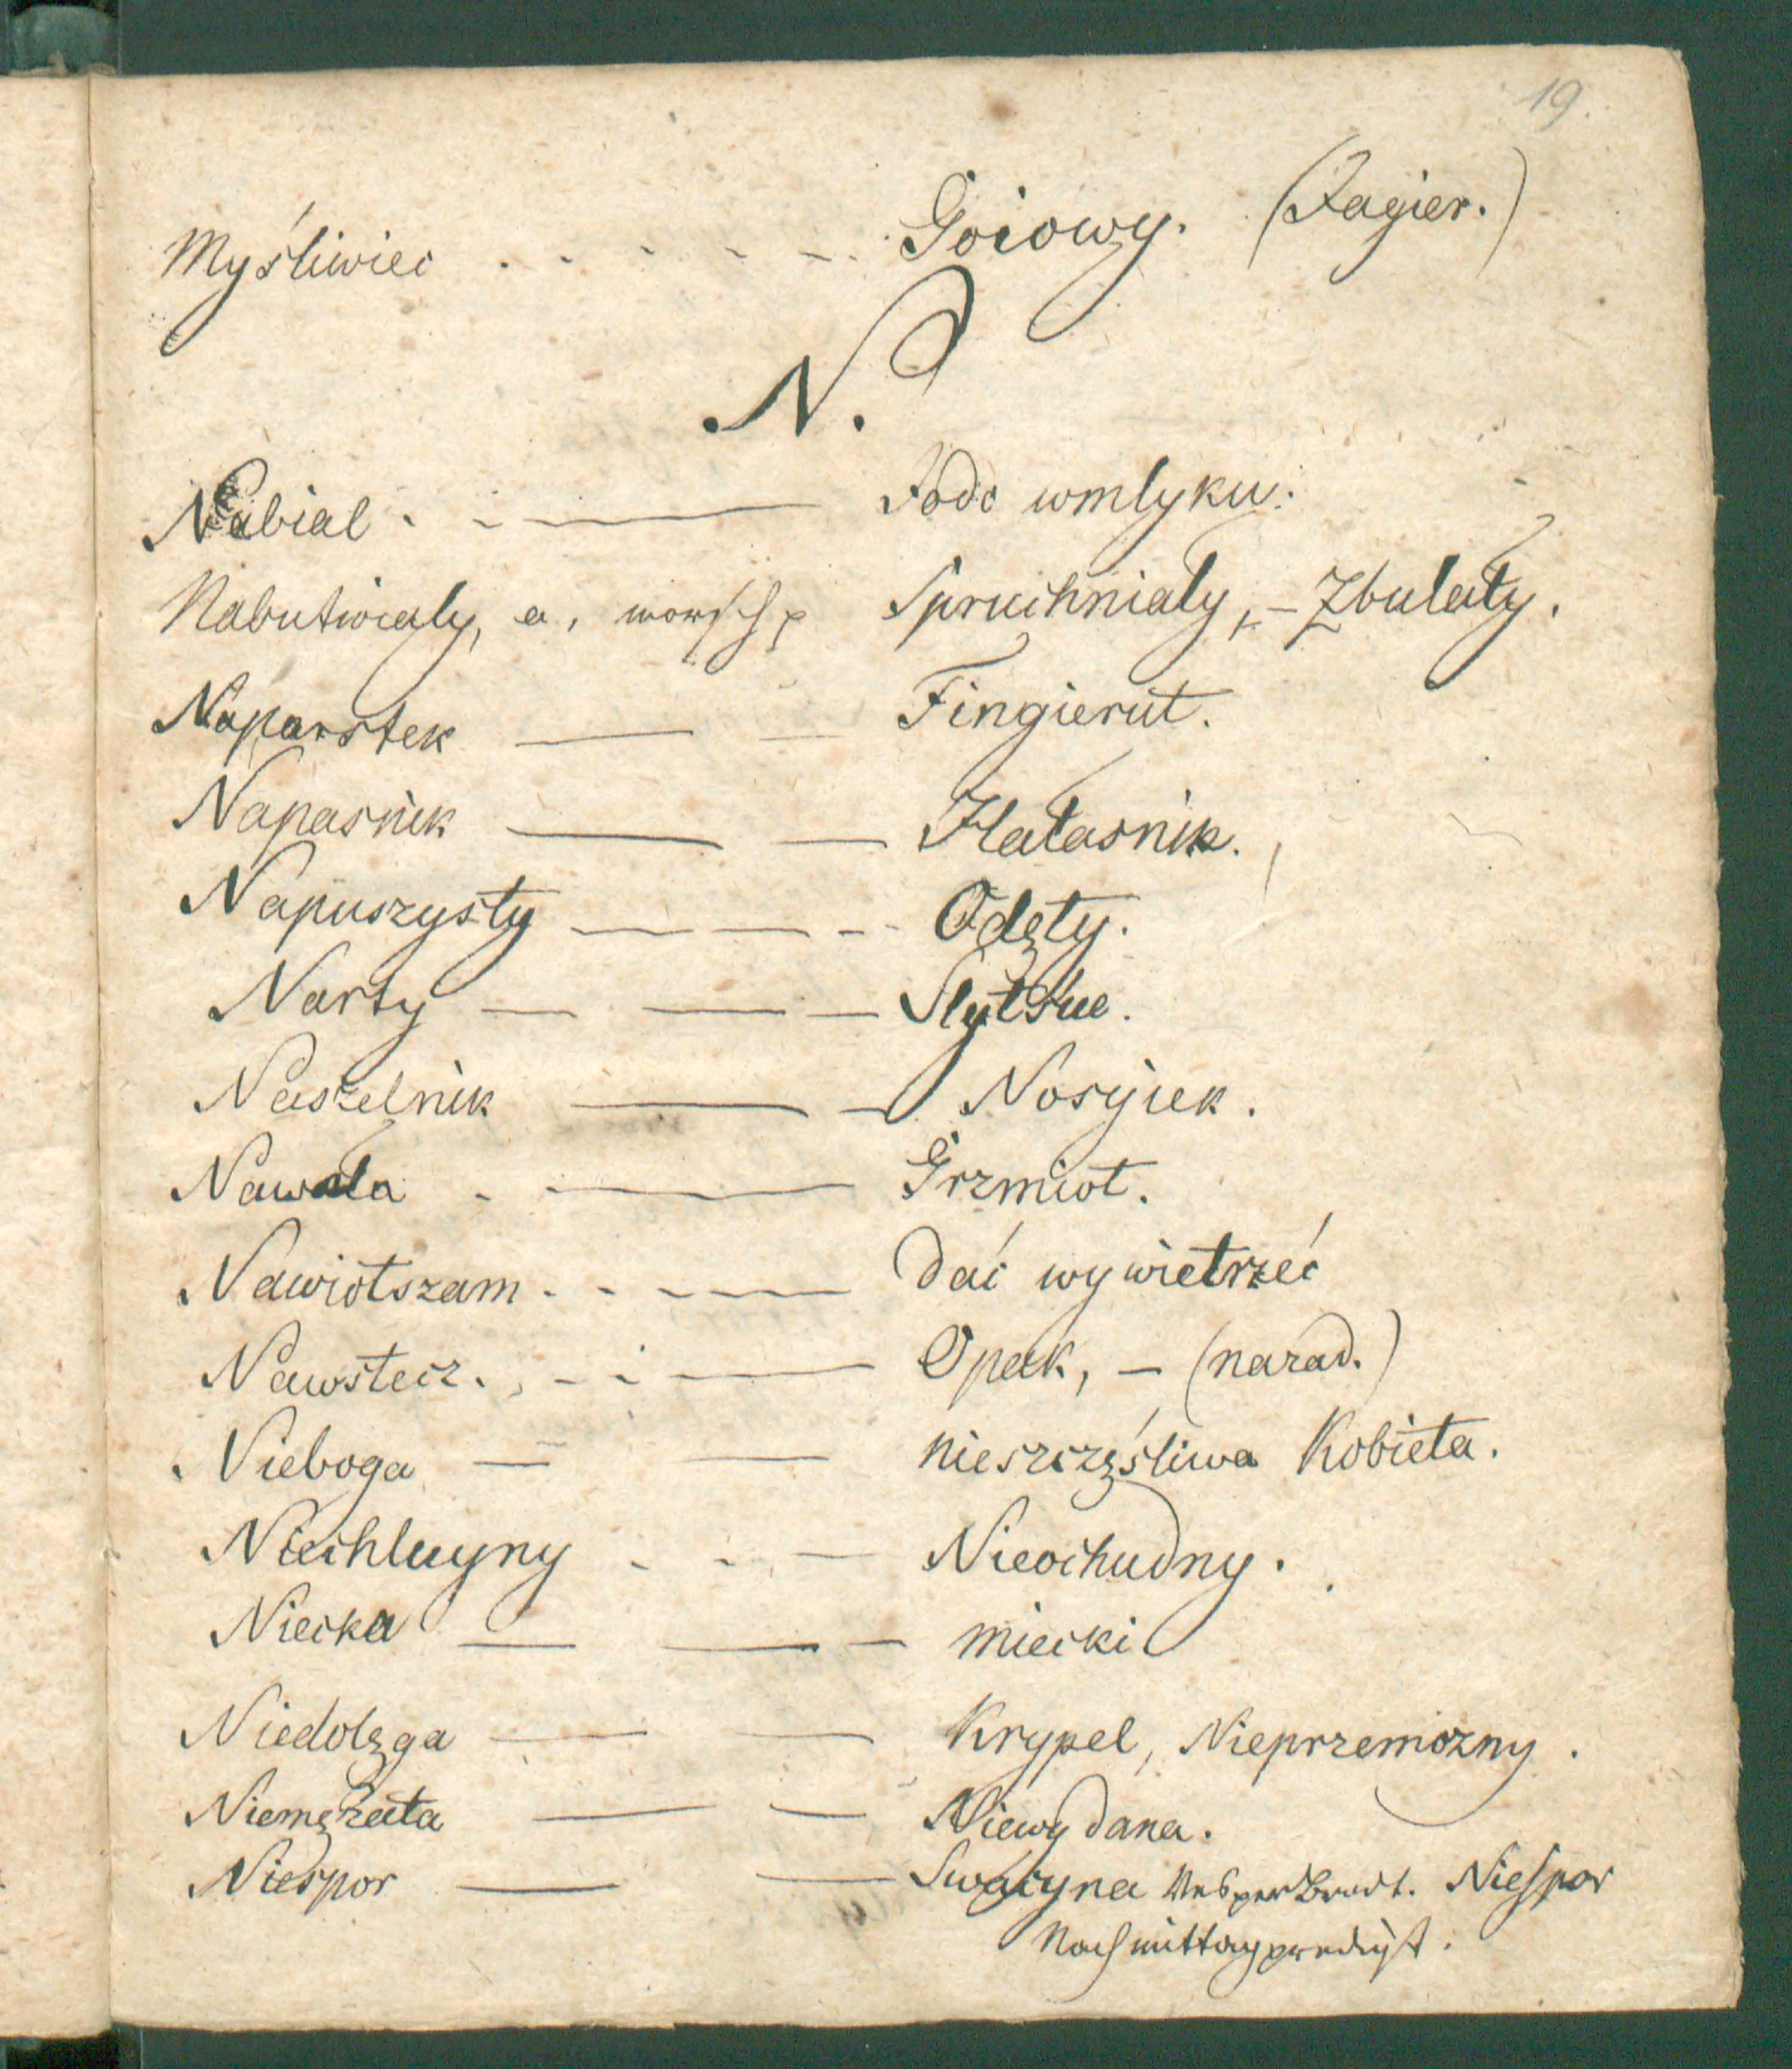 19.
Myśliwiec . . . . . Goiowy. (Jagier.)
N.
Nabial . - — Jodo wmlyku.
Nabutwialy, a, morsch Spruchnialy, – Zbulały.
Naparstek — — Fingierut.
Napasnik — — Hałasnik.
Napuszysty — — - Odęty.
Narty — — — Slytske.
Naszelnik — — Nosyiek.
Nawała - — Grzmiot.
Nawiotszam - - - — Dać wywietrzeć
Nawstecz. - - — Opak, – (narad.)
Nieboga — — nieszczęśliwa Kobieta.
Niechluyny - - — Nieochudny.
Niecka — — - miecki
Niedolęga — — Krypel, Nieprzemozny.
Niemęzata — — Niewydana.
Niespor — — Swaczyna Vesperbrodt. Niespor
Nachmittagpredigt.